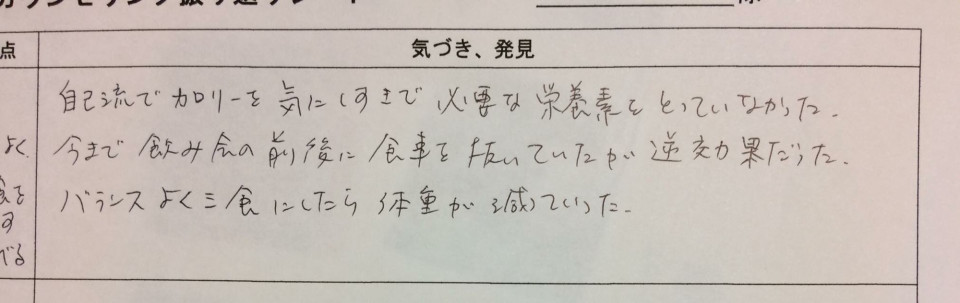 カウンセリング振り返りシート 様
点 気づき、発見
自己流でカロリーを気にしすぎで必要な栄養素をとっていなかった。
よく 今まで飲み会の前後に食事を抜いていたが逆効果だった。
食を バランスよく三食にしたら体重が減っていった。
す
べる